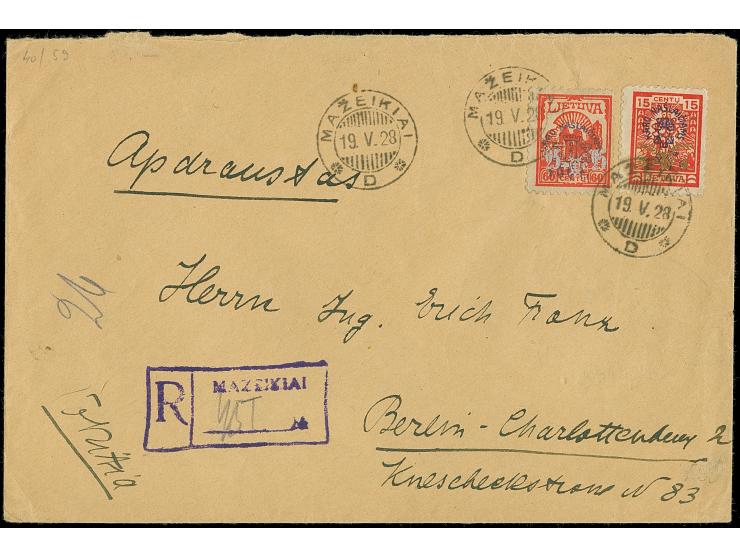 40/59
MAŽEIKIAI
19.V.28
D
MAŽEIKIAI
19.V.28
D
LIETUVA
60 CENTŲ 60
15 CENTŲ 15
LIETUVA
MAŽEIKIAI
19.V.28
D
Apdraustas
Herrn Ing. Erich Franz
R
MAZEIKIAI
№
Berlin-Charlottenburg 2
Knescheckstrasse N 83